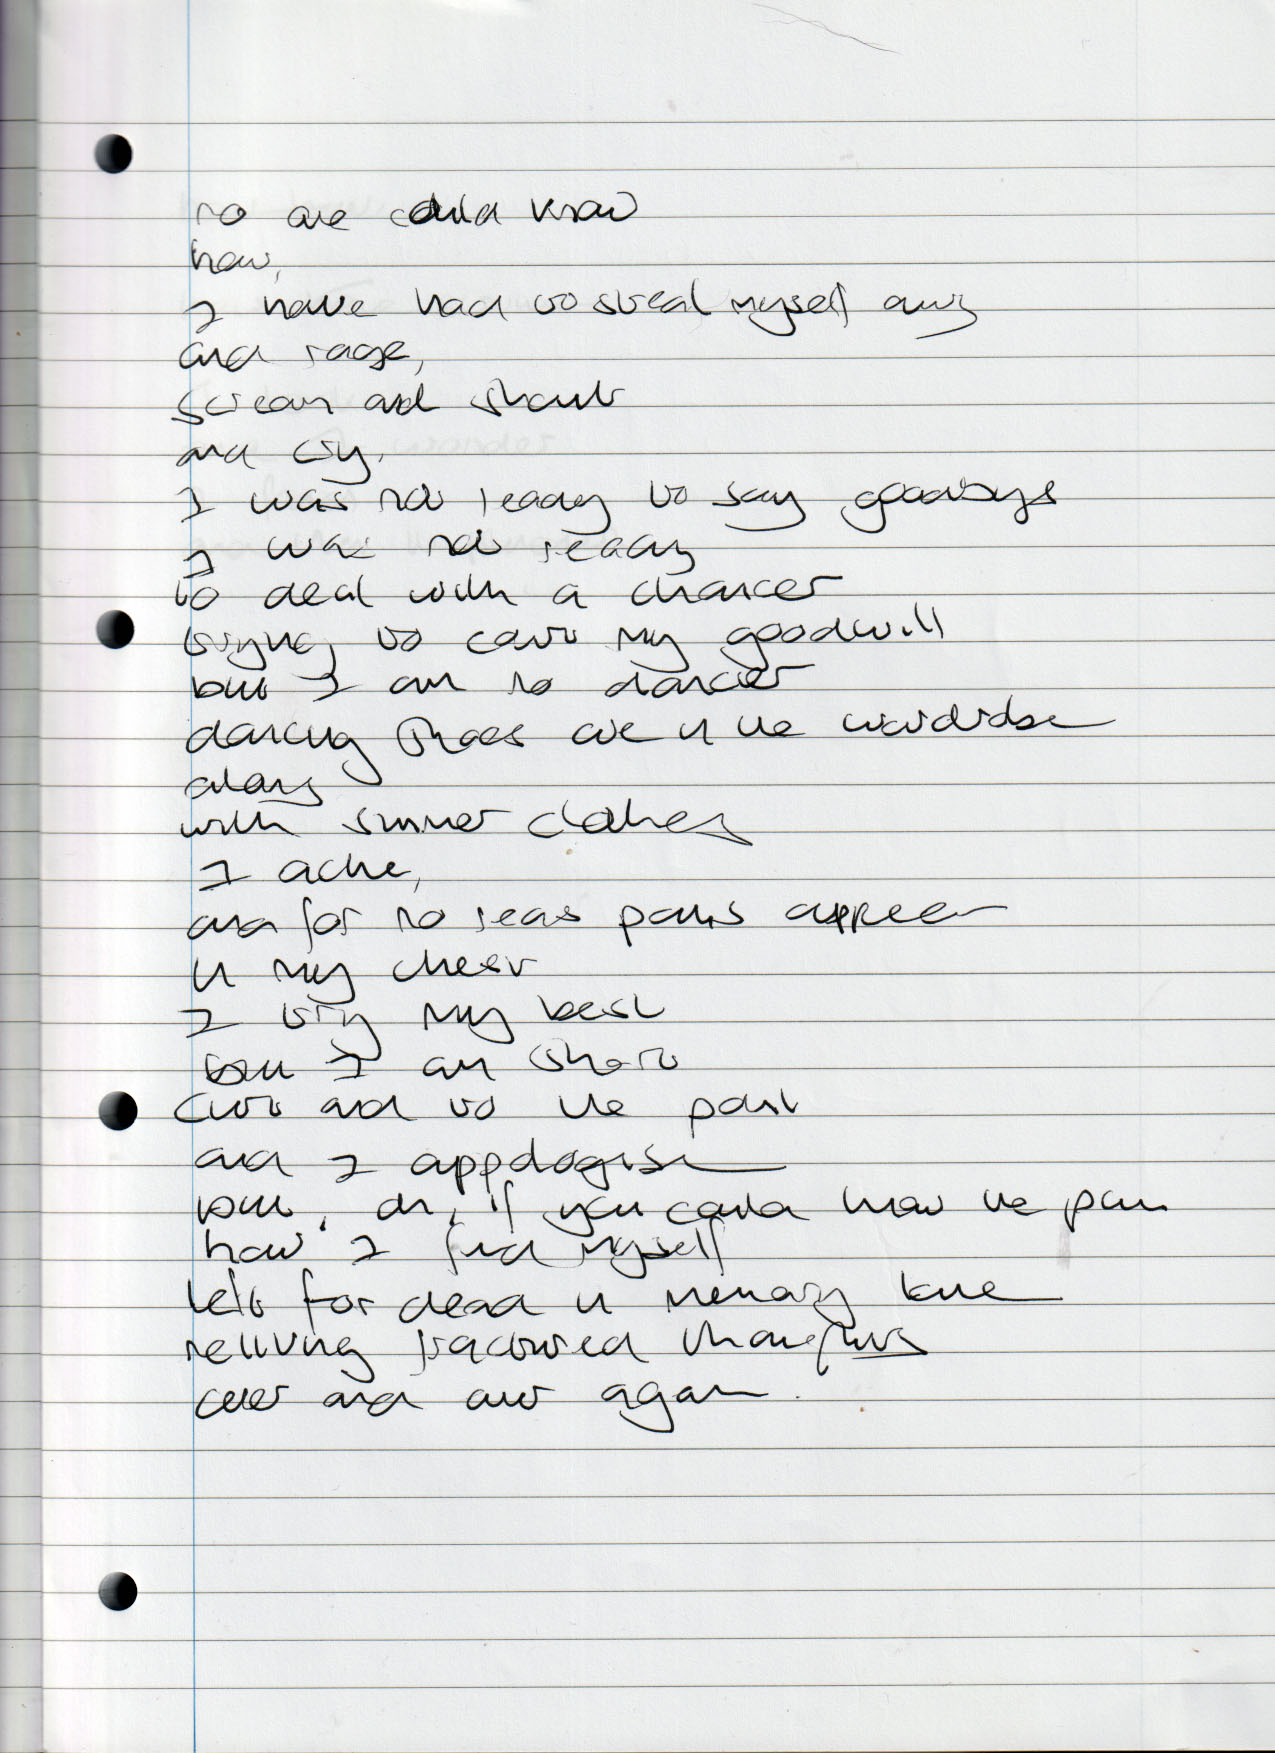 no one could know
how,
I have had to steal myself away
and rage,
scream and shout
and cry.
I was not ready to say goodbye
I was not ready
to deal with a chancer
trying to court my goodwill
but I am no dancer
dancing shoes are in the wardrobe
along
with summer clothes
I ache,
and for no reas pains appear
in my chest
I try my best
but I am short
curt and to the point
and I appologise
but, oh, if you could know the pain
how I find myself
left for dead in memory lane
reliving fractured thoughts
over and over again.